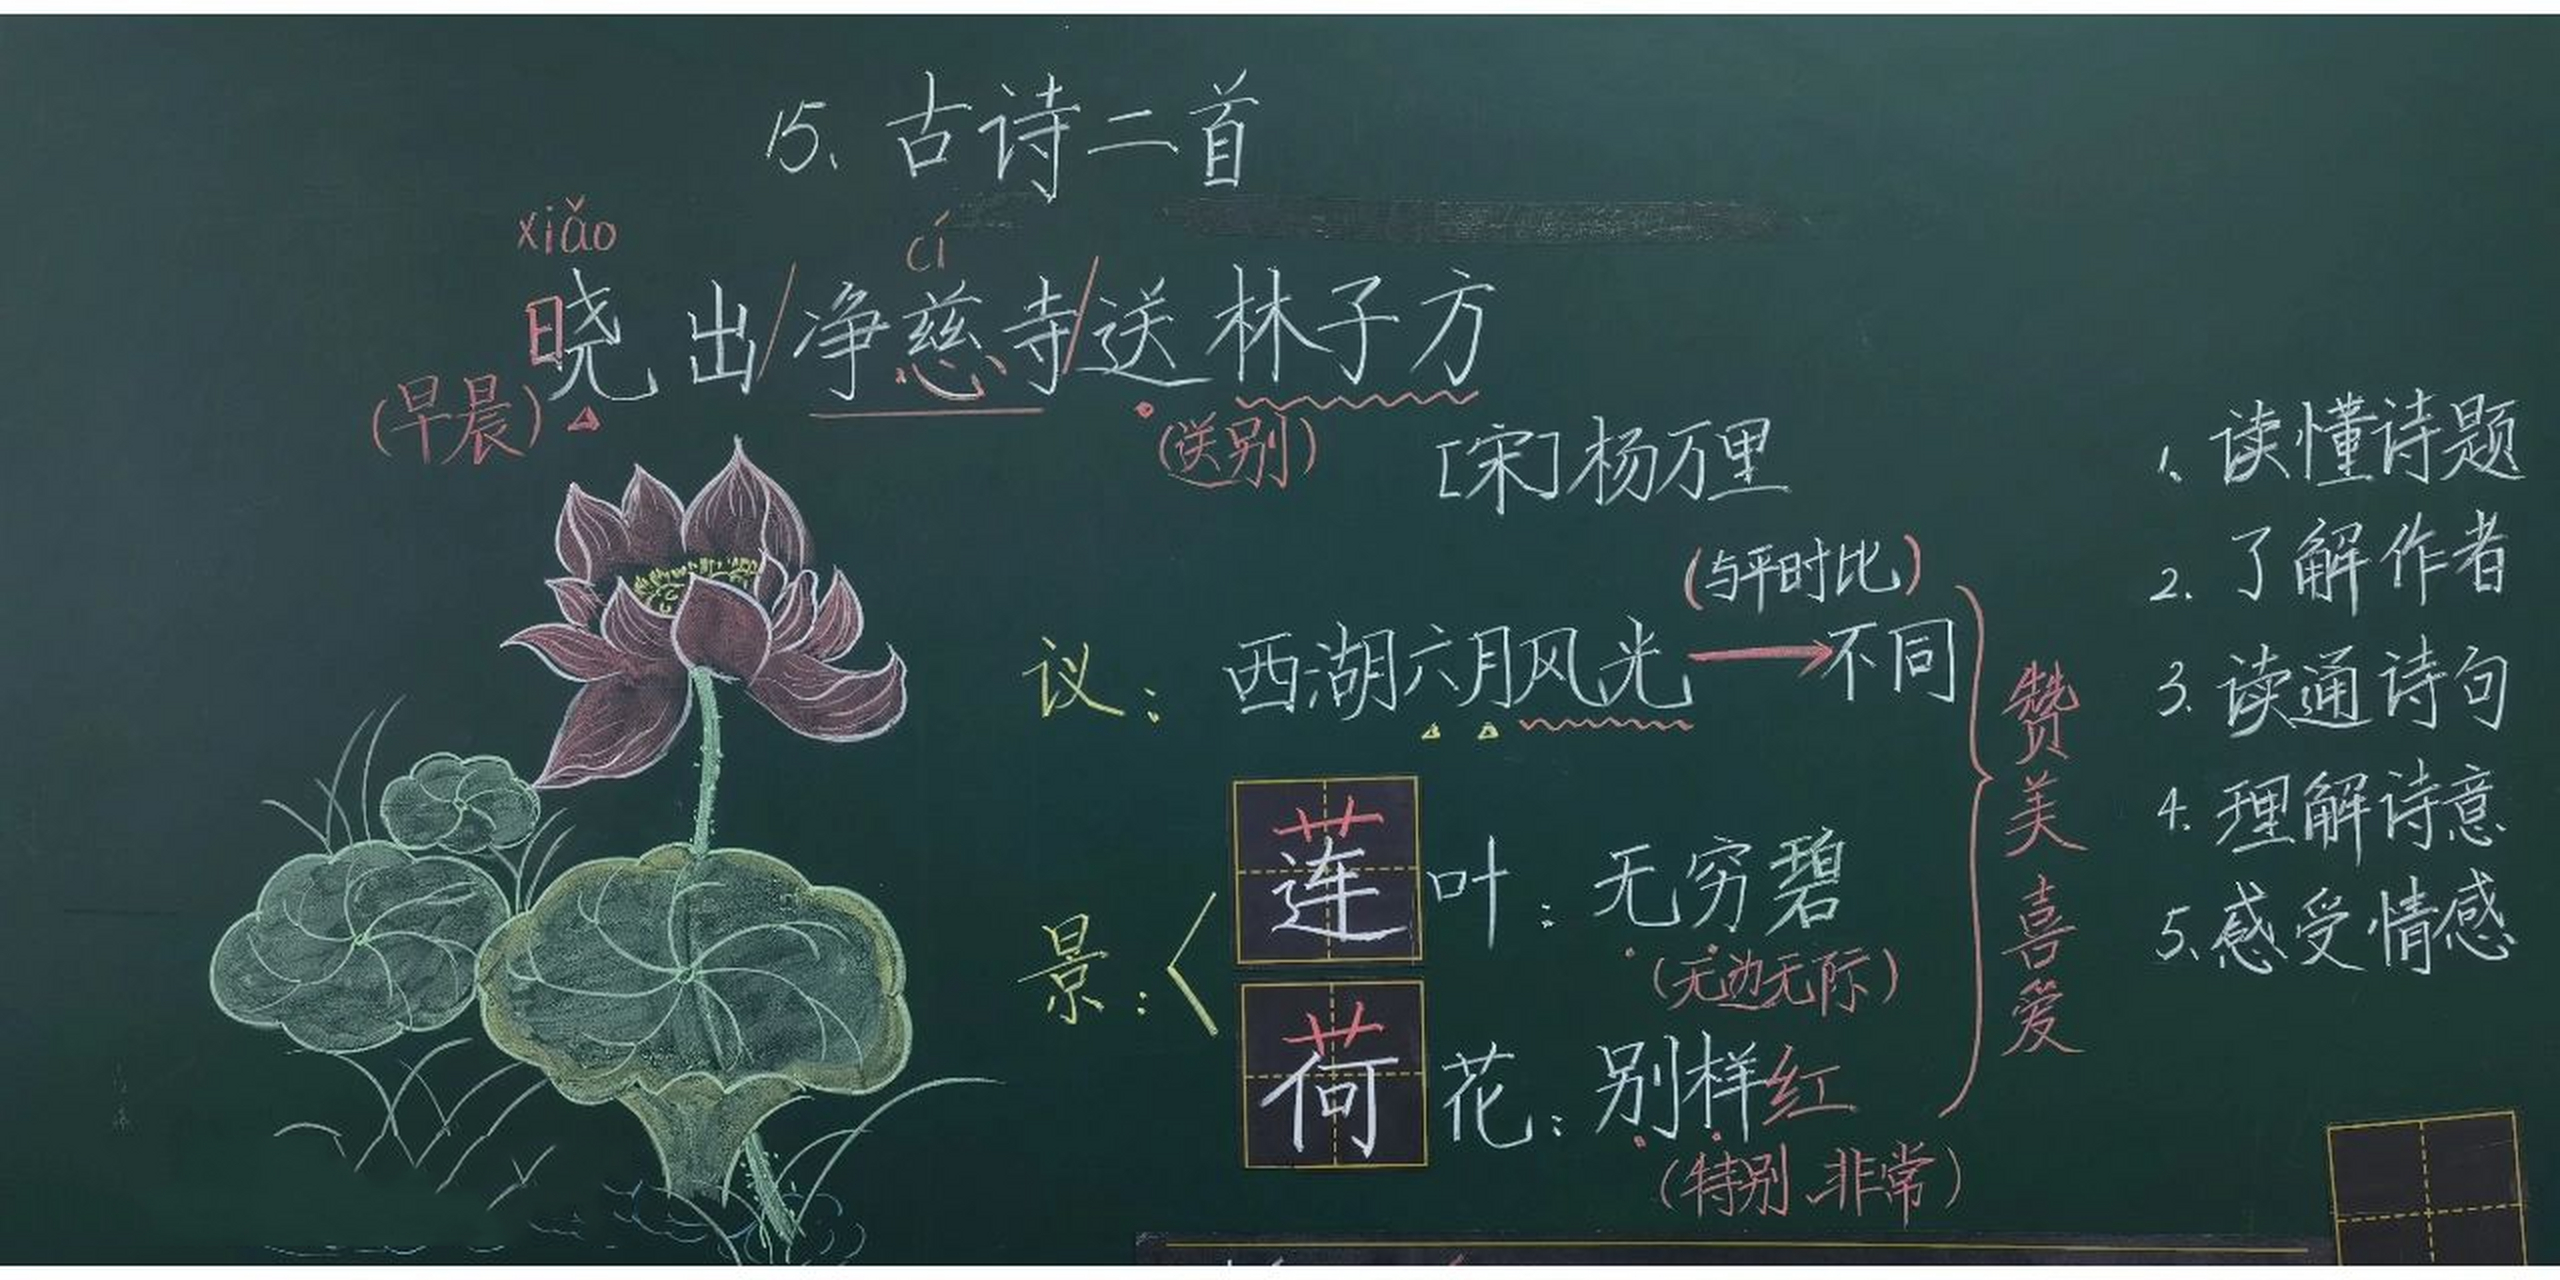 15. 古诗二首
xiǎo cí
晓出/净慈寺/送林子方
(早晨) (送别)
[宋]杨万里
(与平时比)
议: 西湖六月风光→不同
景: 莲叶: 无穷碧
(无边无际)
荷花: 别样红
(特别、非常)
赞美 喜爱
1、读懂诗题
2. 了解作者
3. 读通诗句
4. 理解诗意
5、感受情感